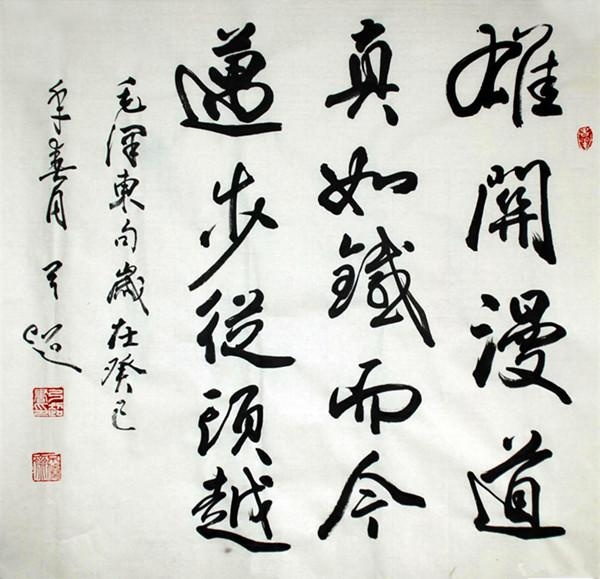 雄關漫道
真如鐵而今
邁步從頭越
毛澤東句歲在癸巳
年春月